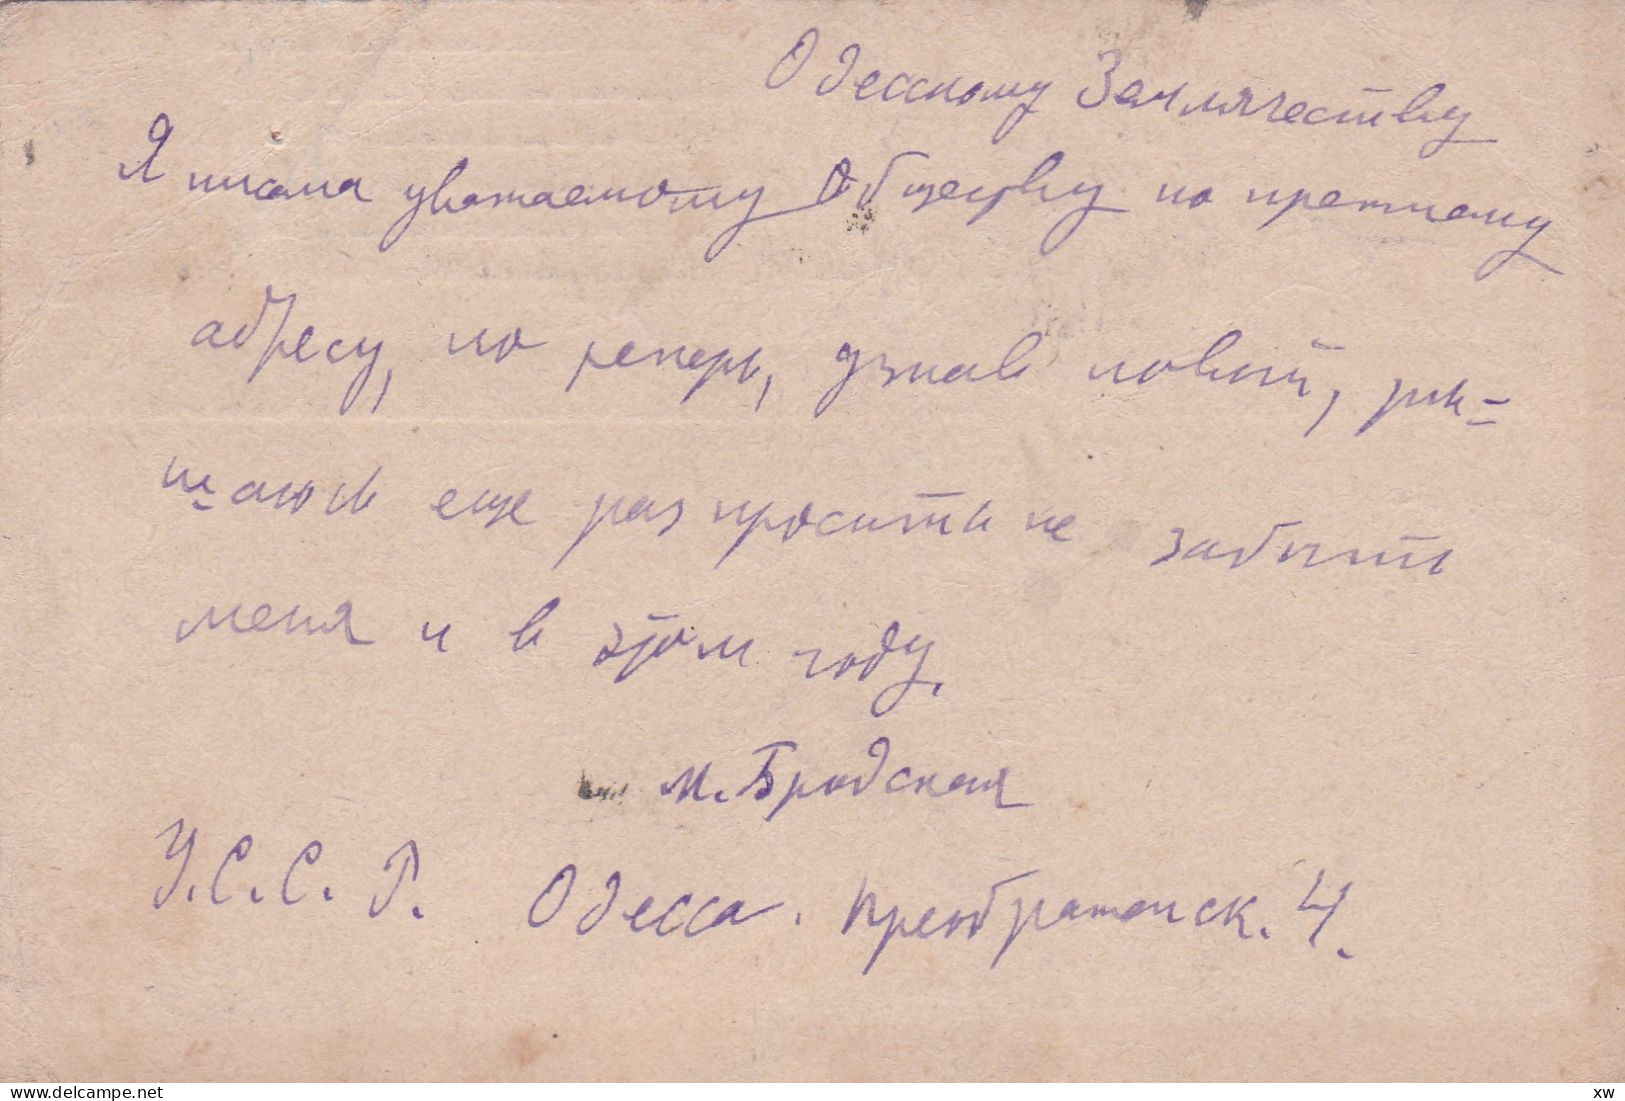 Одесскому Землячеству
Я писала уважаемому Обществу по прежнему
адресу, но теперь, узнав новый, ре-
шаюсь еще раз просить не забыть
меня и в этом году.
М. Бродская
У.С.С.Р. Одесса. Преображенск. 4.
www.delcampe.net
xw